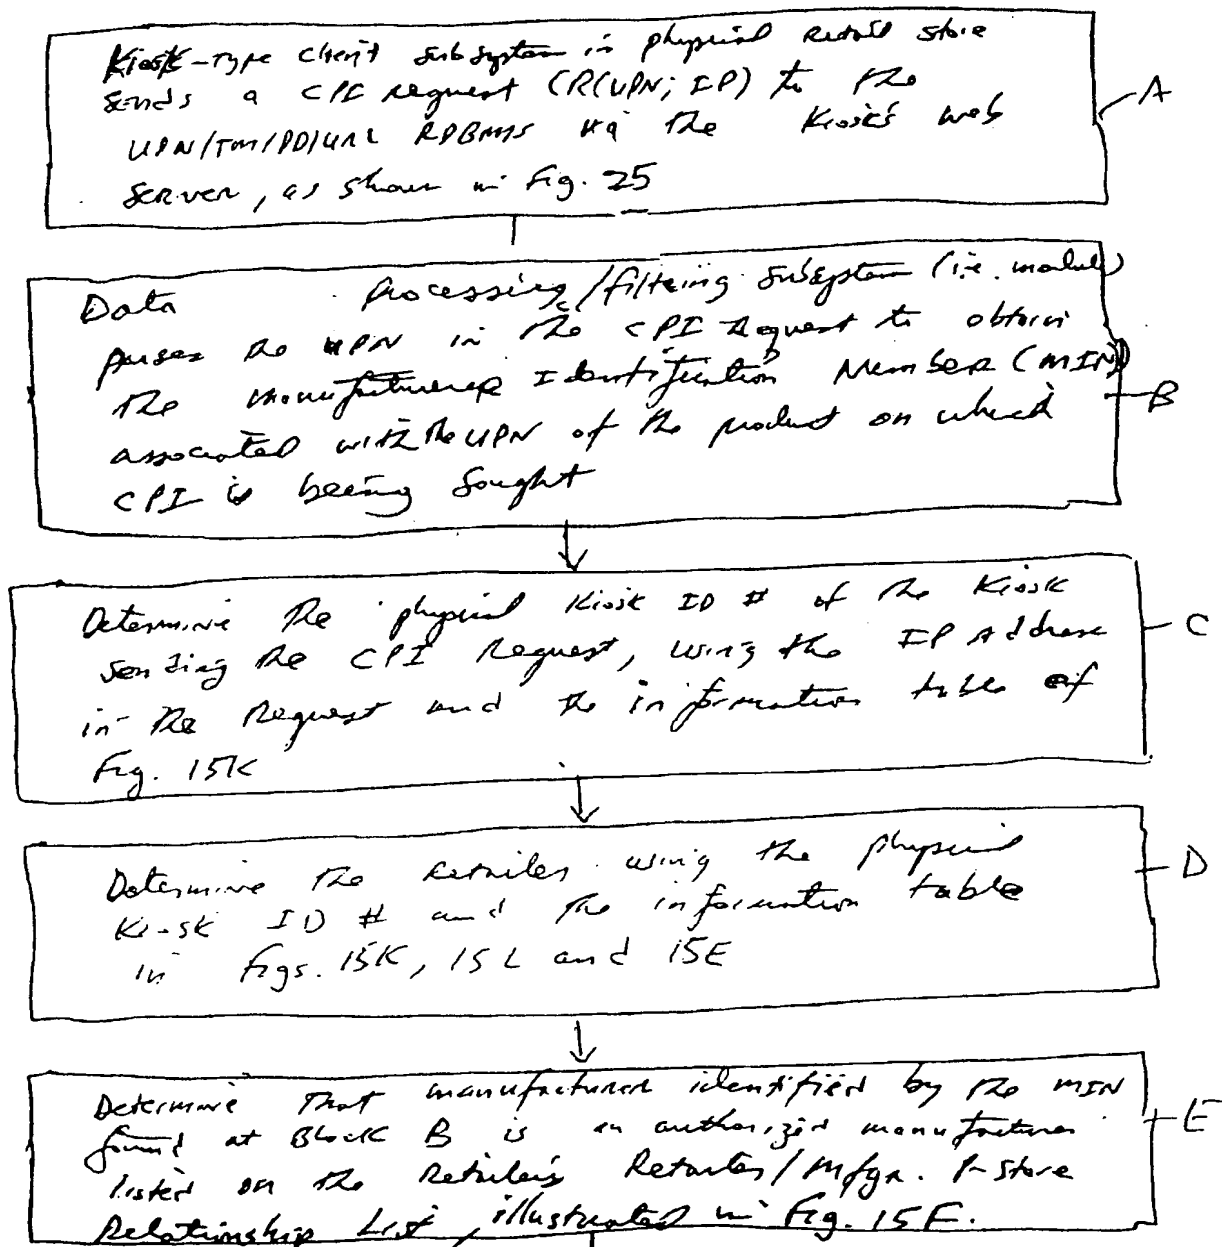 Kiosk-type client subsystem in physical retail store
sends a CPI request (R(UPN; IP) to the
UPN/TM/PD/URL RDBMS via the Kiosk's web
server, as shown in Fig. 25
A
Data processing/filtering subsystem (i.e. module)
parses the UPN in the CPI request to obtain
the "manufacturer Identification" Number (MIN)
associated with the UPN of the product on which
CPI is being sought
B
Determine the physical Kiosk ID # of the Kiosk
sending the CPI Request, using the IP Address
in the Request and the information table of
Fig. 15K
C
Determine the retailer using the physical
Kiosk ID # and the information table
in Figs. 15K, 15L and 15E
D
Determine that manufacturer identified by the MIN
found at Block B is an authorized manufacturer
listed on the Retailer's Retailer/Mfgr. P-Store
Relationship List, illustrated in Fig. 15F.
E